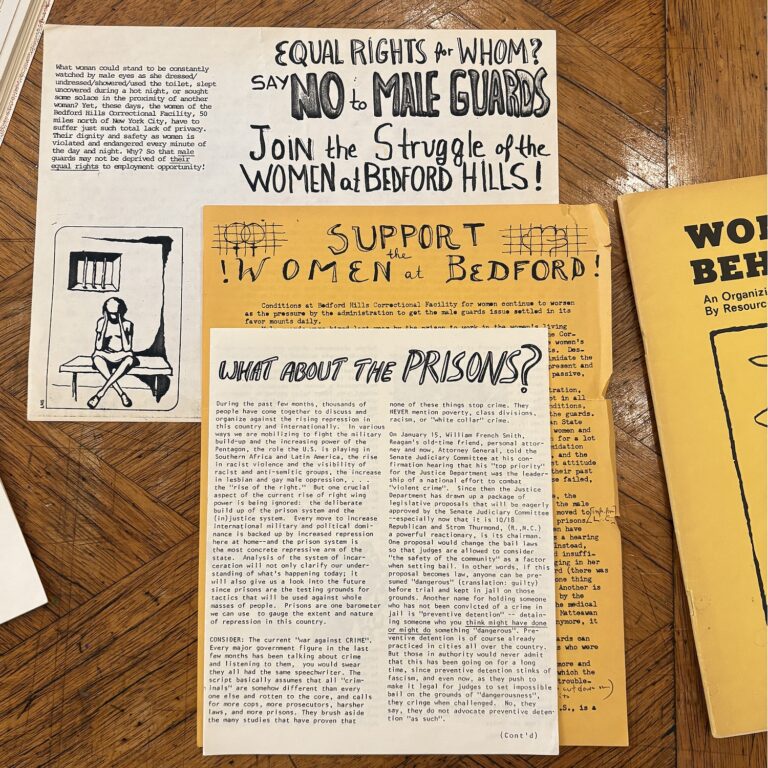 What woman could stand to be constantly
watched by male eyes as she dressed/
undressed/showered/used the toilet, slept
uncovered during a hot night, or sought
some solace in the proximity of another
woman? Yet, these days, the women of the
Bedford Hills Correctional Facility, 50
miles north of New York City, have to
suffer just such total lack of privacy.
Their dignity and safety as women is
violated and endangered every minute of
the day and night. Why? So that male
guards may not be deprived of their
equal rights to employment opportunity!
EQUAL RIGHTS for WHOM?
SAY NO to MALE GUARDS
JOIN the Struggle of the
WOMEN at BEDFORD HILLS!
SUPPORT
the
!WOMEN at BEDFORD!
Conditions at Bedford Hills Correctional Facility for women continue to worsen
as the pressure by the administration to get the male guards issue settled in its
favor mounts daily.
WHAT ABOUT THE PRISONS?
During the past few months, thousands of
people have come together to discuss and
organize against the rising repression in
this country and internationally. In various
ways we are mobilizing to fight the military
build-up and the increasing power of the
Pentagon, the role the U.S. is playing in
Southern Africa and Latin America, the rise
in racist violence and the visibility of
racist and anti-semitic groups, the increase
in lesbian and gay male oppression, . . . .
the "rise of the right." But one crucial
aspect of the current rise of right wing
power is being ignored: the deliberate
build up of the prison system and the
(in)justice system. Every move to increase
international military and political domi-
nance is backed up by increased repression
here at home--and the prison system is
the most concrete repressive arm of the
state. Analysis of the system of incar-
ceration will not only clarify our under-
standing of what's happening today; it
will also give us a look into the future
since prisons are the testing grounds for
tactics that will be used against whole
masses of people. Prisons are one barometer
we can use to gauge the extent and nature
of repression in this country.
CONSIDER: The current "war against CRIME".
Every major government figure in the last
few months has been talking about crime
and listening to them, you would swear
they all had the same speechwriter. The
script basically assumes that all "crim-
inals" are somehow different than every
one else and rotten to the core, and calls
for more cops, more prosecutors, harsher
laws, and more prisons. They brush aside
the many studies that have proven that
none of these things stop crime. They
NEVER mention poverty, class divisions,
racism, or "white collar" crime.
On January 15, William French Smith,
Reagan's old-time friend, personal attor-
ney and now, Attorney General, told the
Senate Judiciary Committee at his con-
firmation hearing that his "top priority"
for the Justice Department was the leader-
ship of a national effort to combat
"violent crime". Since then the Justice
Department has drawn up a package of
legislative proposals that will be eagerly
approved by the Senate Judiciary Committee
--especially now that it is 10/18
Republican and Strom Thurmond, (R.,N.C.)
a powerful reactionary, is its chairman.
One proposal would change the bail laws
so that judges are allowed to consider
"the safety of the community" as a factor
when setting bail. In other words, if this
proposal becomes law, anyone can be pre-
sumed "dangerous" (translation: guilty)
before trial and kept in jail on those
grounds. Another name for holding someone
who has not been convicted of a crime in
jail is "preventive detention" -- detain-
ing someone who you think might have done
or might do something "dangerous". Pre-
ventive detention is of course already
practiced in cities all over the country.
But those in authority would never admit
that this has been going on for a long
time, since preventive detention stinks of
fascism, and even now, as they push to
make it legal for judges to set impossible
bail on the grounds of "dangerousness",
they cringe when challenged. No, they
say, they do not advocate preventive deten-
tion "as such".
(Cont'd)
WOM
BEH
An Organizi
By Resourc